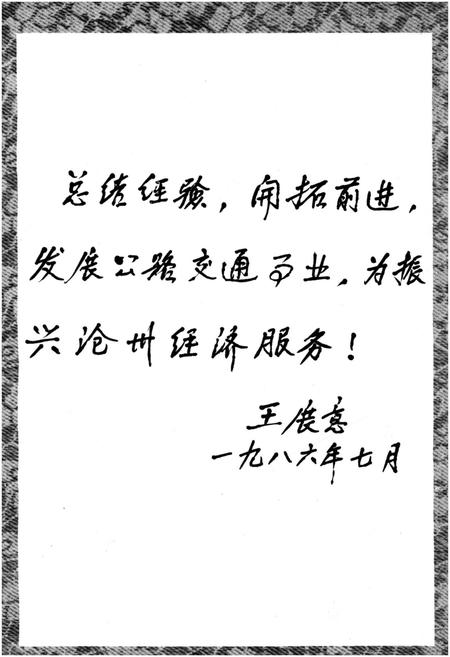 总结经验，开拓前进，
发展公路交通事业，为振
兴沧州经济服务！
王展意
一九八六年七月